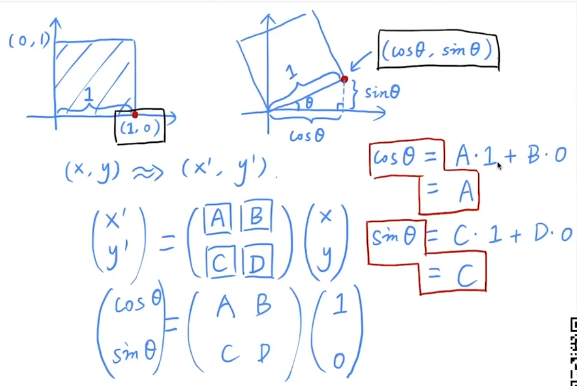 (0, 1)
1
(1, 0)
1
θ
cosθ
sinθ
(cosθ, sinθ)
(x, y) ≈> (x', y').
(x' y') = (A B C D) (x y)
(cosθ sinθ) = (A B C D) (1 0)
cosθ = A·1 + B·0
= A
sinθ = C·1 + D·0
= C